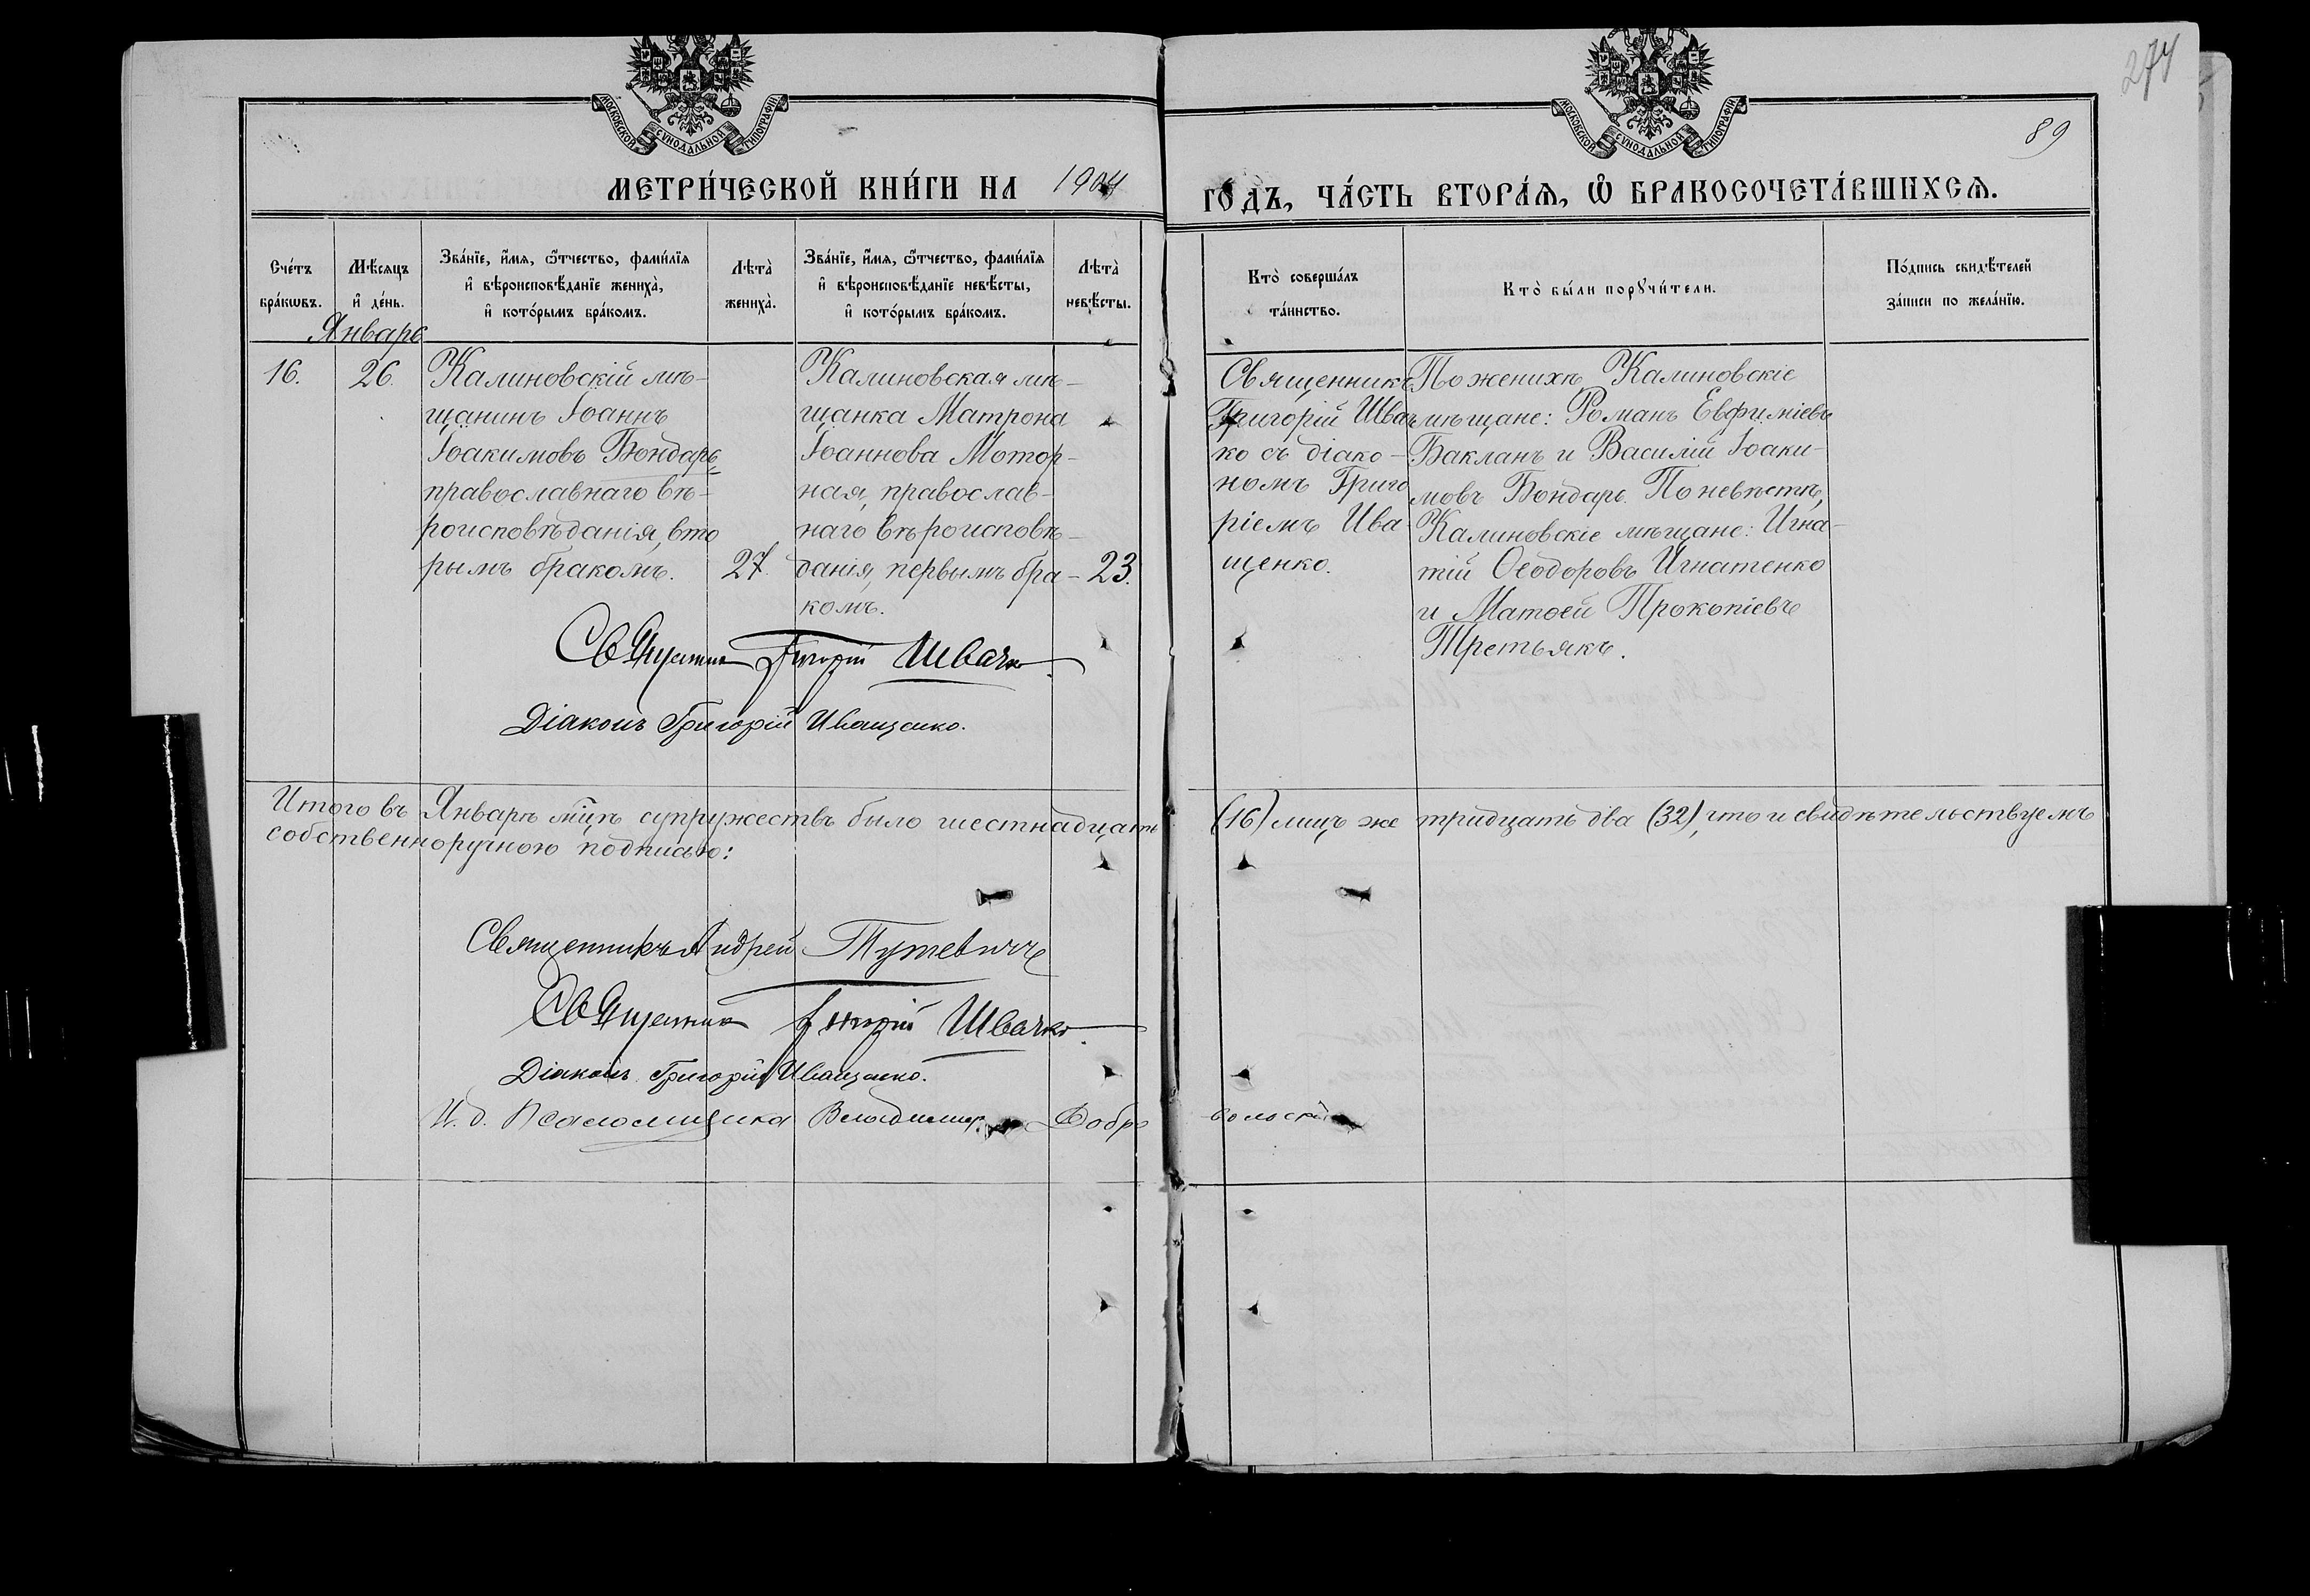 274
89
МОСКОВСКОЙ СѴНОДАЛЬНОЙ ТИПОГРАФІИ
МОСКОВСКОЙ СѴНОДАЛЬНОЙ ТИПОГРАФІИ
МЕТРИ́ЧЕСКОЙ КНИ́ГИ НА 1904 ГО́ДЪ, ЧА́СТЬ ВТОРА́Ѧ, Ѽ БРАКОСОЧЕТА́ВШИХСѦ.
Сче́тъ бра́кѡвъ.
Мѣ́сяцъ и҆ де́нь.
Зва́нїе, и҆́мя, ѻ҆́тчество, фами́лїя и҆ вѣроисповѣ́данїе жениха̀, и҆ кото́рымъ бра́комъ.
Лѣта̀ жениха̀.
Зва́нїе, и҆́мя, ѻ҆́тчество, фами́лїя и҆ вѣроисповѣ́данїе невѣ́сты, и҆ кото́рымъ бра́комъ.
Лѣта̀ невѣ́сты.
Кто̀ соверша́лъ та́инство.
Кто̀ бы́ли порꙋчи́тели.
По́дпись свидѣ́телей за́писи по жела́нїю.
Январь
16.
26.
Калиновскій мѣ-
щанинъ Іоаннъ
Іоакимовъ Бондарь,
православнаго вѣ-
роисповѣданія, вто
рымъ бракомъ.
27.
Калиновская мѣ-
щанка Матрона
Іоаннова Мотор-
ная, православ-
наго вѣроисповѣ-
данія, первымъ бра-
комъ.
23.
Священникъ
Григорій Швач
ко съ діако-
номъ Григо
ріемъ Ива
щенко.
По женихѣ Калиновскіе
мѣщане: Романъ Евфиміевъ
Бакланъ и Василій Іоаки-
мовъ Бондарь. По невѣстѣ,
Калиновскіе мѣщане: Игна-
тій Ѳеодоровъ Игнатенко
и Матѳей Прокопіевъ
Третьякъ.
Священникъ Григорій Швачко
Діаконъ Григорій Иващенко.
Итого въ Январѣ мц͠ѣ супружествъ было шестнадцать (16) лицъ же тридцать два (32), что и свидѣтельствуемъ
собственноручною подписью:
Священникъ Андрей Тутевичъ
Священникъ Григорій Швачко
Діаконъ Григорій Иващенко.
И. д. Псаломщика Владимиръ Добровольскій